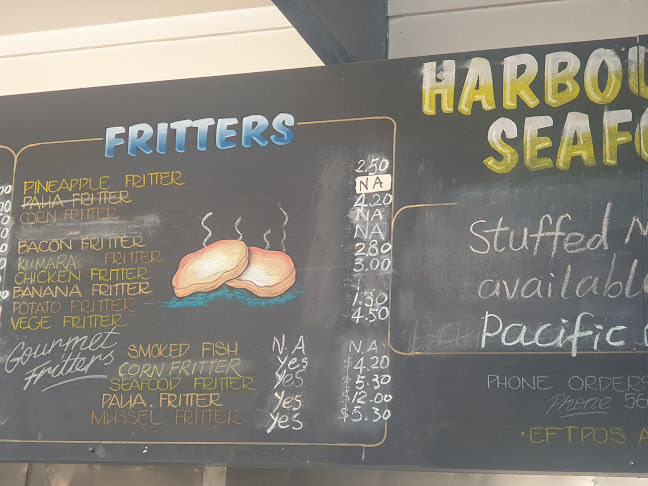 FRITTERS
PINEAPPLE FRITTER 2.50
PAUA FRITTER NA
CORN FRITTER 4.20
NA
BACON FRITTER NA
KUMARA FRITTER 2.80
CHICKEN FRITTER 3.00
BANANA FRITTER
POTATO FRITTER 1.30
VEGE FRITTER 4.50
Gourmet
Fritters
SMOKED FISH N.A N.A
CORN FRITTER Yes $4.20
SEAFOOD FRITTER Yes $5.30
PAUA FRITTER Yes $12.00
MUSSEL FRITTER Yes $5.30
HARBOU
SEAFO
Stuffed
availabl
Pacific
PHONE ORDERS
Phone 56
EFTPOS A